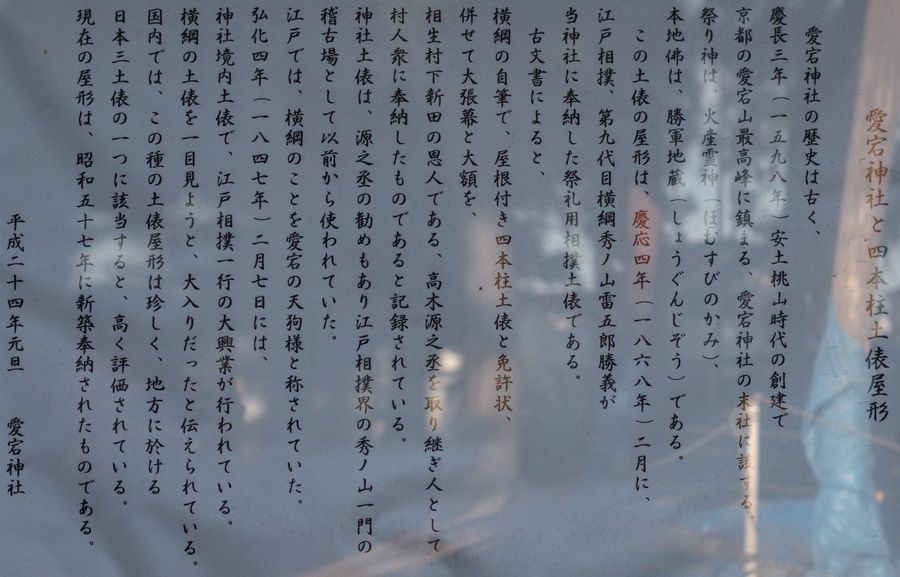 愛宕神社と四本柱土俵屋形
愛宕神社の歴史は古く、
慶長三年(一五九八年)安土桃山時代の創建で
京都の愛宕山最高峰に鎮まる、愛宕神社の末社に該する。
祭り神は、火産霊神(ほむすびのかみ)、
本地佛は、勝軍地蔵(しょうぐんじぞう)である。
この土俵の屋形は、慶応四年(一八六八年)二月に、
江戸相撲、第九代目横綱秀ノ山雷五郎勝義が
当神社に奉納した祭礼用相撲土俵である。
古文書によると、
横綱の自筆で、屋根付き四本柱土俵と免許状、
併せて大張幕と大額を、
相生村下新田の恩人である、高木源之丞を取り継ぎ人として
村人衆に奉納したものであると記録されている。
神社土俵は、源之丞の勧めもあり江戸相撲界の秀ノ山一門の
稽古場として以前から使われていた。
江戸では、横綱のことを愛宕の天狗様と称されていた。
弘化四年(一八四七年)二月七日には、
神社境内土俵で、江戸相撲一行の大興業が行われている。
横綱の土俵を一目見ようと、大入りだったと伝えられている。
国内では、この種の土俵屋形は珍しく、地方に於ける
日本三土俵の一つに該当すると、高く評価されている。
現在の屋形は、昭和五十七年に新築奉納されたものである。
平成二十四年元旦 愛宕神社